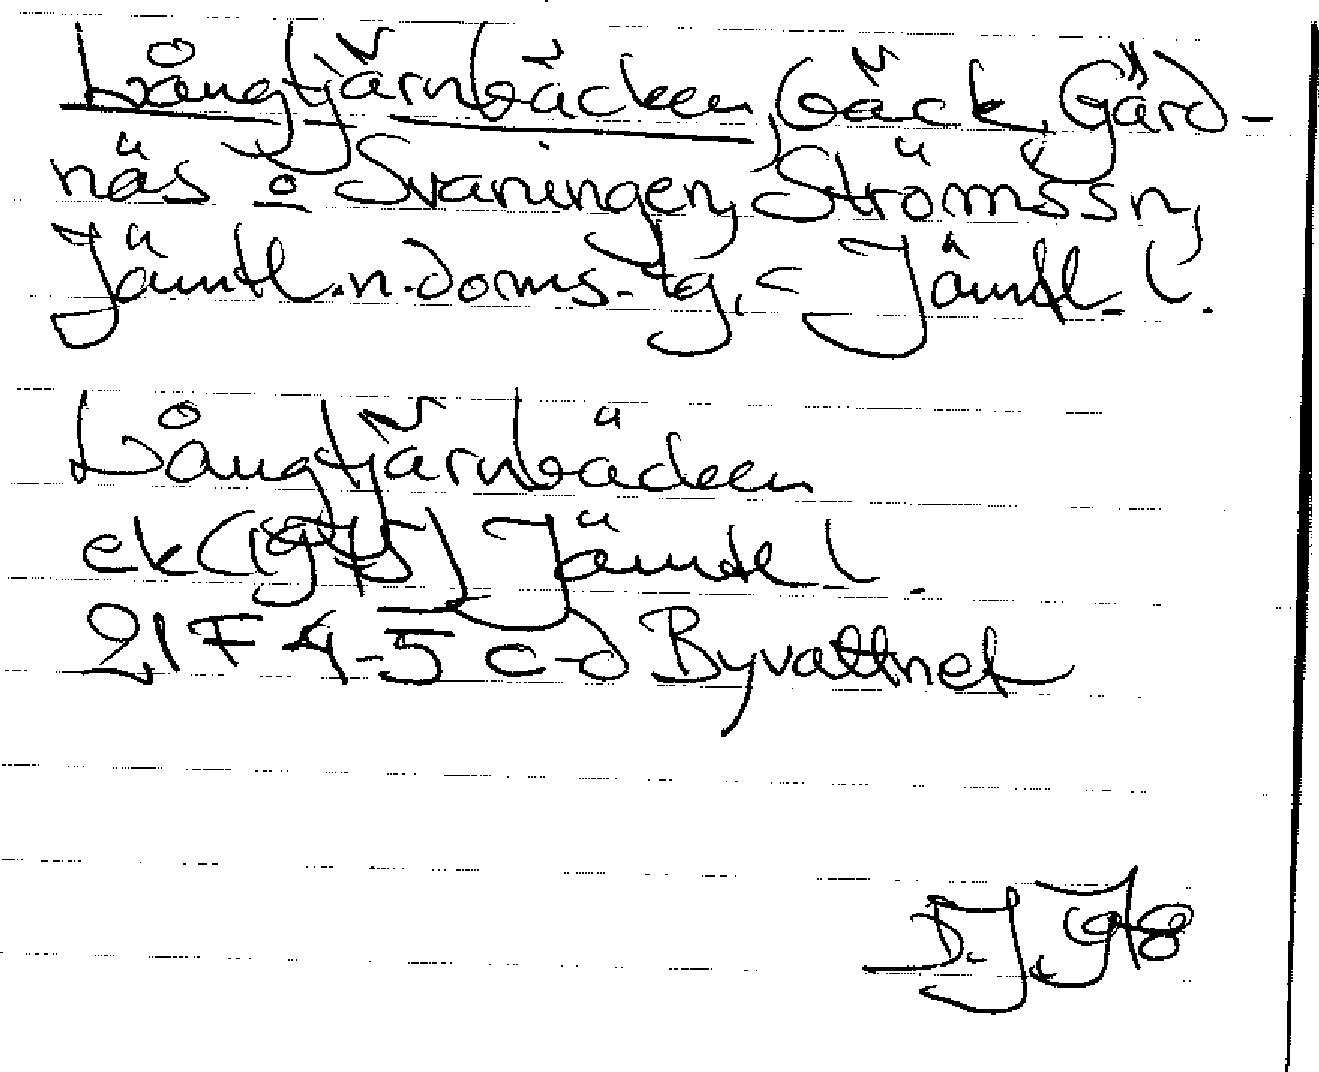 Långtjärnbäcken, bäck, Gärd-
näs o Svaningen, Ströms sn,
Jämtl. n. doms. tg, = Jämtl. l.
Långtjärnbäcken
ek (1975) Jämtl.
21 F 4-5 c-d Byvattnet
D.J. 1978